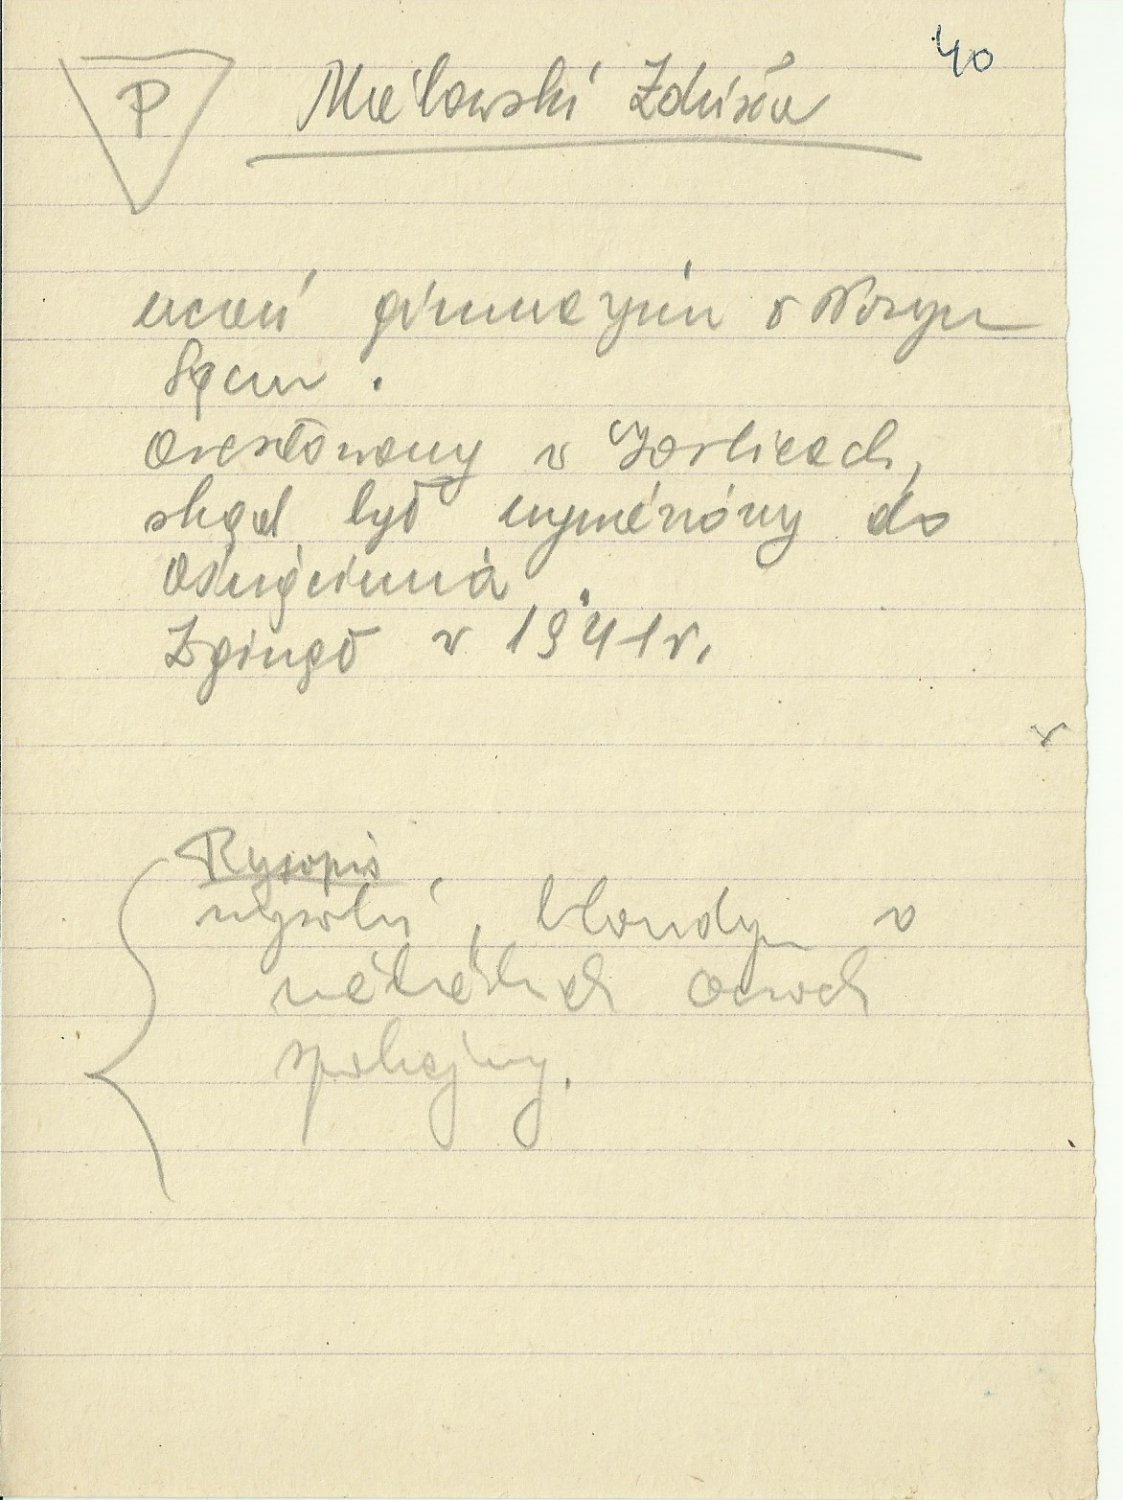 40
P Milowski Zdzisław
uczeń gimnazjum w Nowym
Sączu.
aresztowany w Gorlicach,
skąd był wywieziony do
Oświęcimia.
Zginął w 1941 r.
Rysopis
wysoki, blondyn o
niebieskich oczach
spokojny.